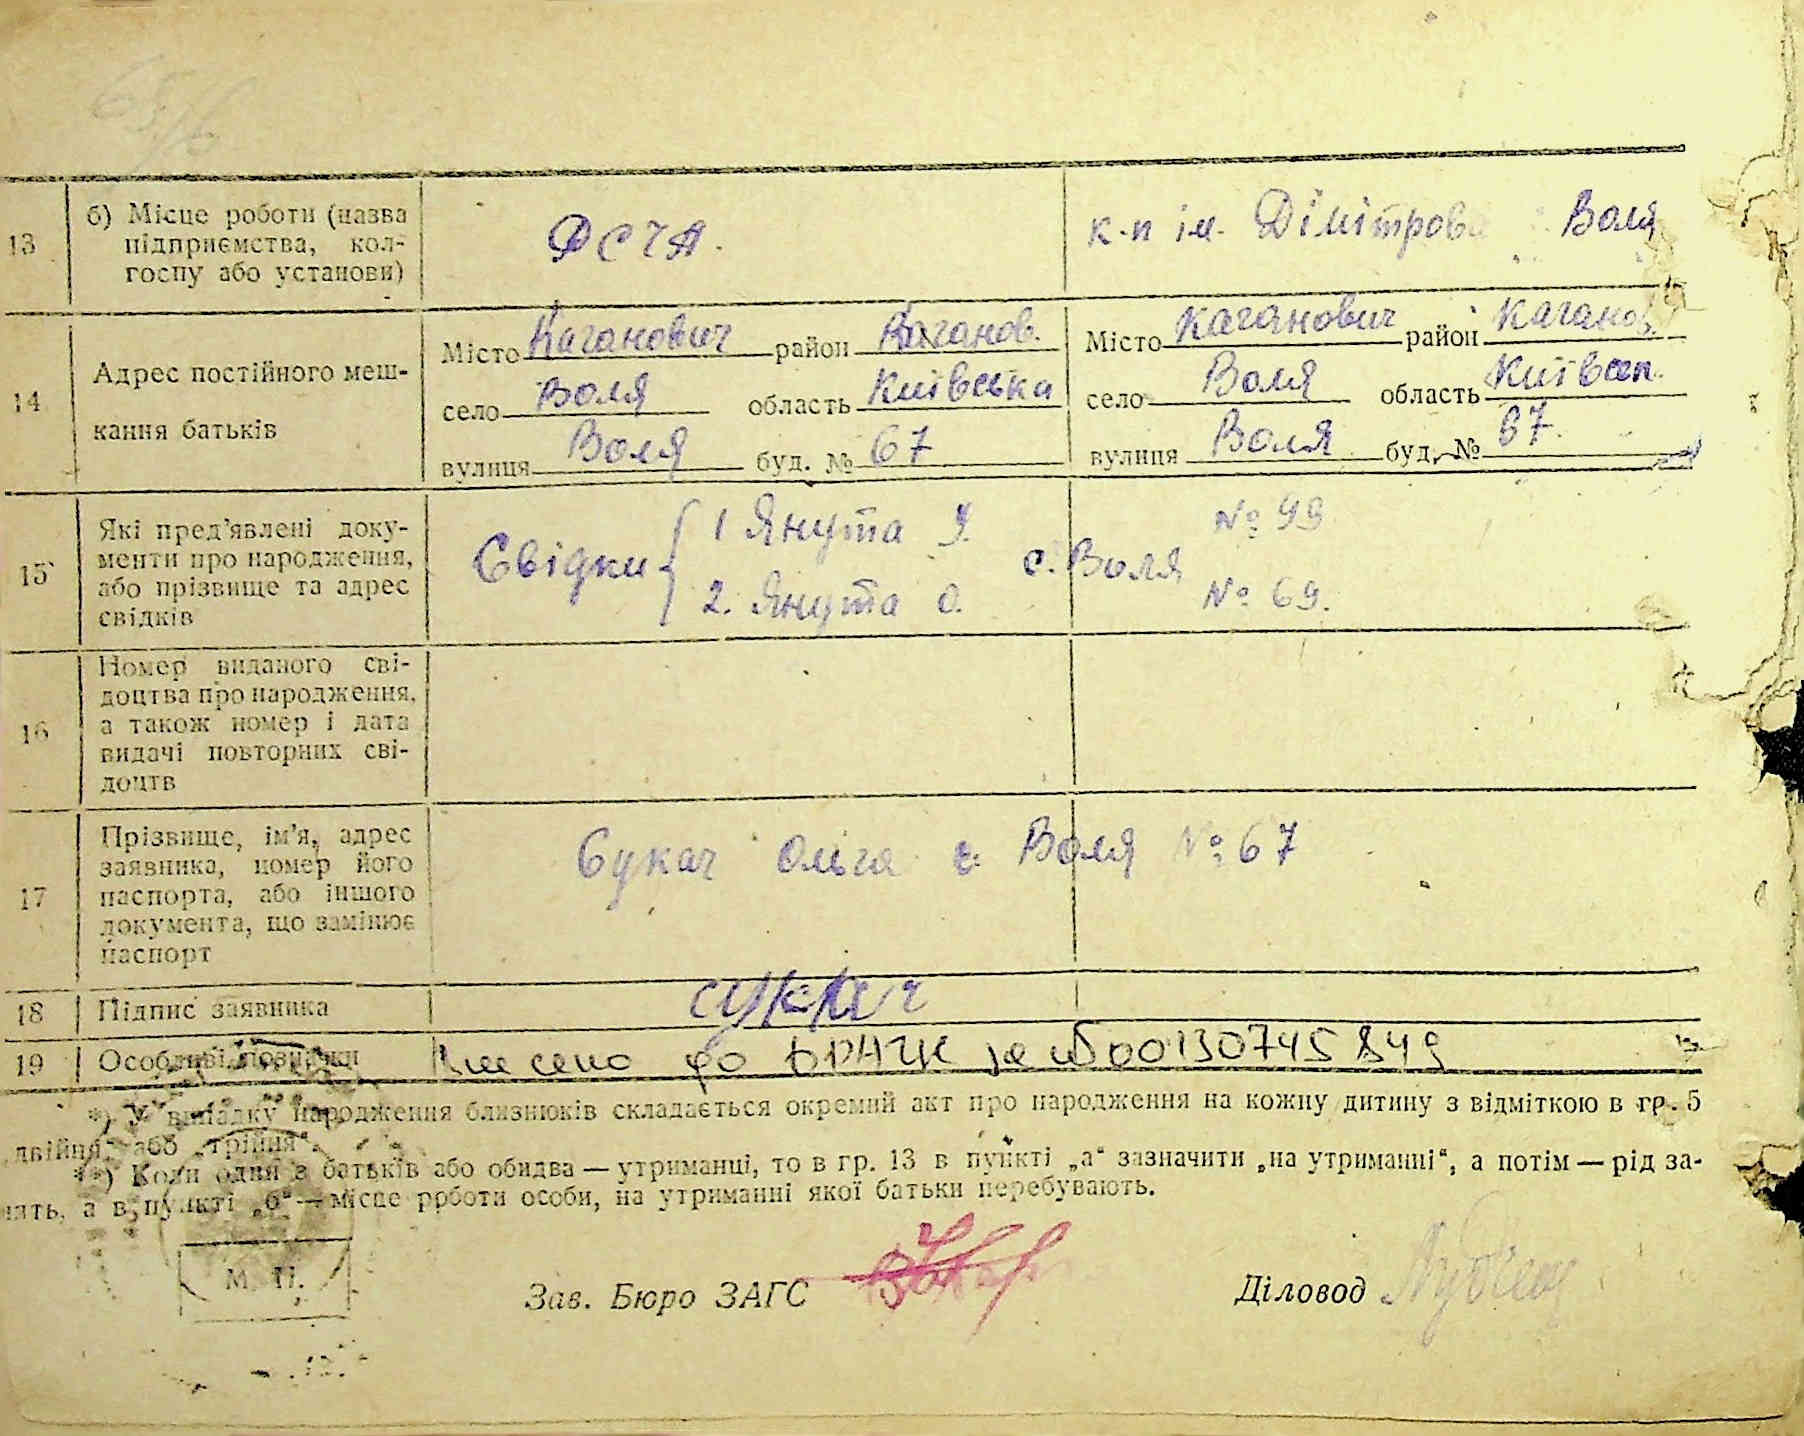 13
б) Місце роботи (назва
підприємства, кол-
госпу або установи)
РСЧА.
к-п ім. Дімітрова Воля
14
Адрес постійного меш-
кання батьків
Місто Каганович район Каганов.
село Воля область Київська
вулиця Воля буд. № 67
Місто Каганович район Каганов.
село Воля область Київськ.
вулиця Воля буд. № 67.
15
Які пред'явлені доку-
менти про народження,
або прізвище та адрес
свідків
Свідки
1 Янута У.
2. Янута О.
с. Воля
№ 99
№ 69.
16
Номер виданого сві-
доцтва про народження,
а також номер і дата
видачі повторних сві-
доцтв
17
Прізвище, ім'я, адрес
заявника, номер його
паспорта, або іншого
документа, що замінює
паспорт
Сукач Ольга с. Воля № 67
18
Підпис заявника
Сукач
19
Особливі позначки
Внесено до ДРАЦС за №00130745849
*) У випадку народження близнюків складається окремий акт про народження на кожну дитину з відміткою в гр. 5
двійня, або „трійня“.
**) Коли один з батьків або обидва — утриманці, то в гр. 13 в пункті „а“ зазначити „на утриманні“, а потім — рід за-
нять, а в пункті „б“ — місце роботи особи, на утриманні якої батьки перебувають.
М. П.
Зав. Бюро ЗАГС
Діловод